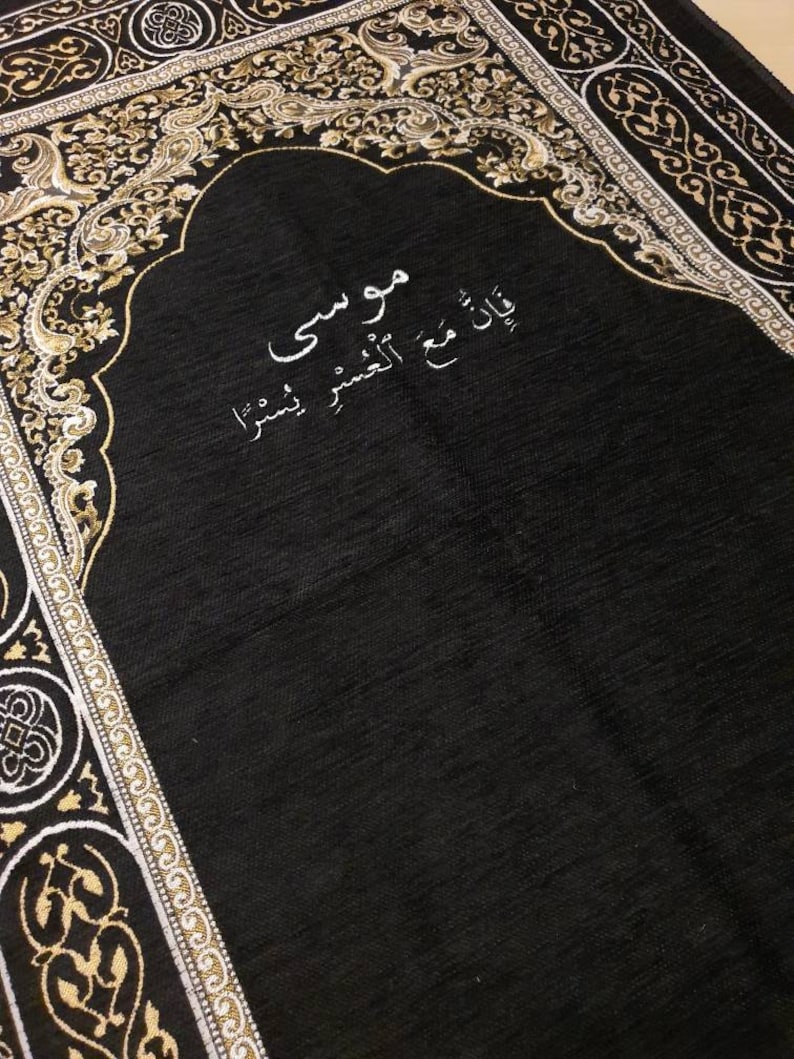 موسى
فَإِنَّ مَعَ ٱلْعُسْرِ يُسْرًا